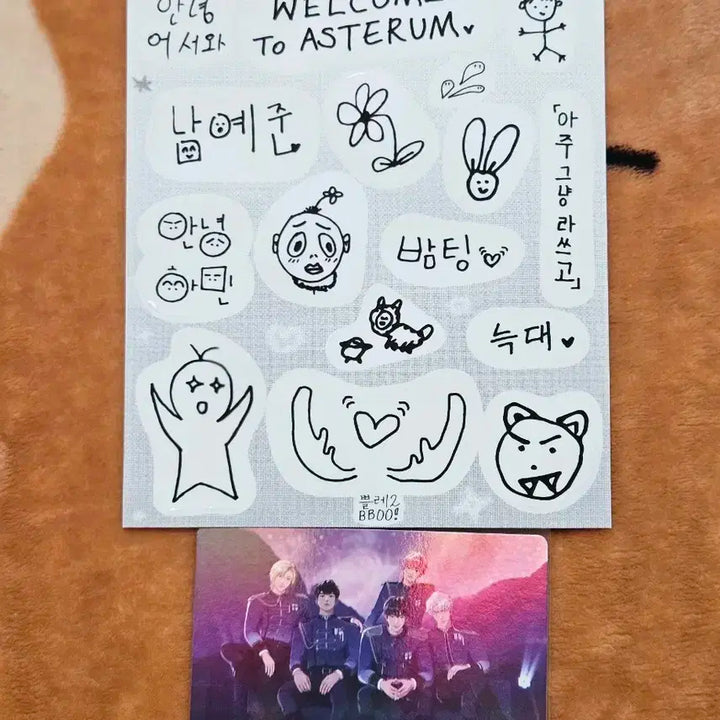 안녕
어서와
WELCOME
TO ASTERUM
남예준
「아주 그냥 라쓰고」
안녕
하민
밤팅
늑대
쁠레2
BBOO!